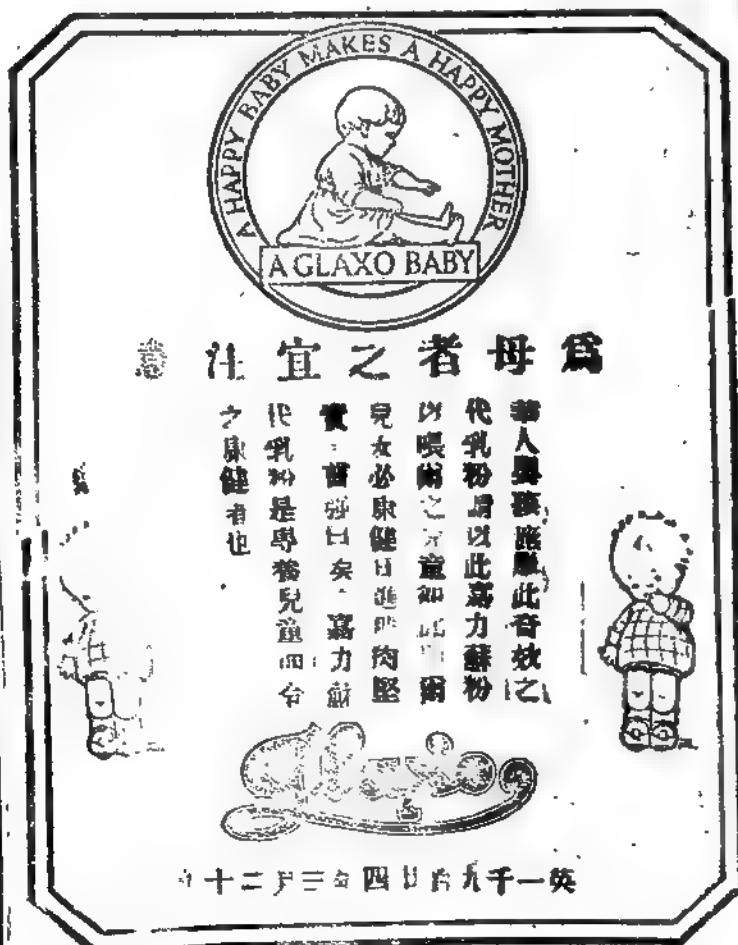 A HAPPY BABY MAKES A HAPPY MOTHER
A GLAXO BABY
爲母者之宜注意
華人與孩此奇效之
代乳粉請以此嘉力蘇粉
以喂爾之兒童如此爾
兒女必康健日進肌肉堅
實日矣嘉力蘇
代乳粉是專養兒童而令
之康健者也
英一千九百廿四年三月二十